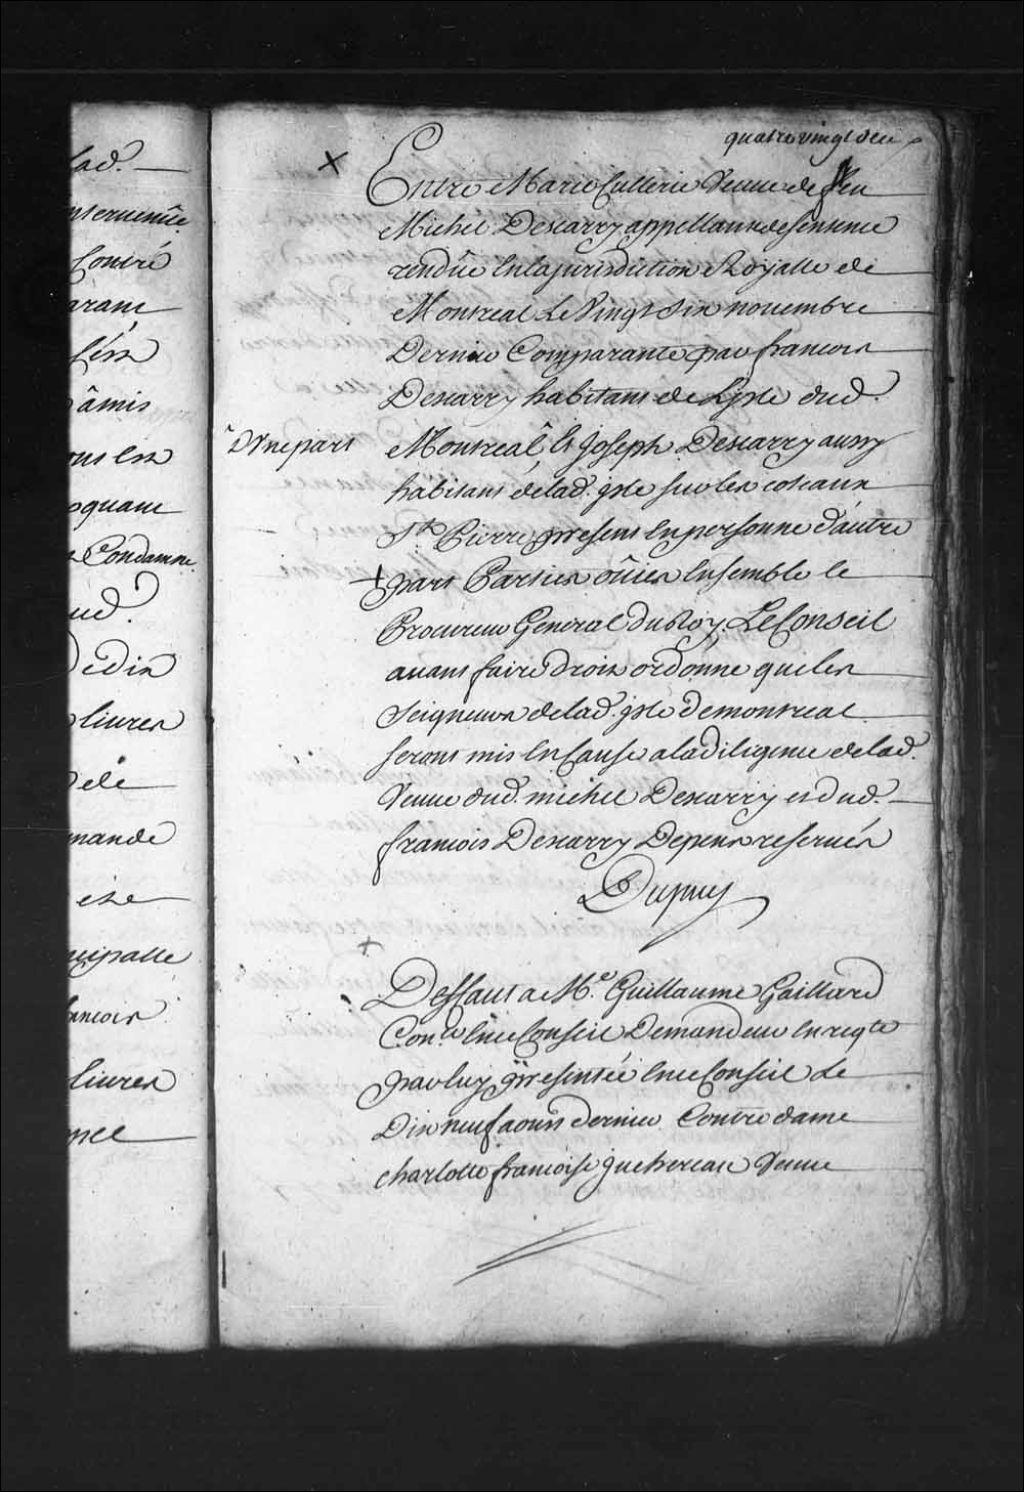 lad.
ntervenüe
Contré
arant
lésd
âmis
ous les
oquant
Condamne
ud.
dedix
livres
de
mande
cipalle
ancois
livres
nce
quatrevingt deu
Entre Marie Cullerie Veuve de feu
Michel Descarry appellante de sentence
rendüe en la jurisdiction Royalle de
Montreal Le Vingt Six novembre
Dernier Comparante par francois
Descarry habitant de Lisle dud.
D'Vne part
Montreal, Et Joseph Descarry aussy
habitant de lad. isle sur les coteaux
St. Pierre present en personne d'autre
part Parties oüies Ensemble le
Procureur General du Roy. Le Conseil
avant faire droit ordonne que les
Seigneurs de lad. isle de montreal
seront mis En Cause a la diligence de lad.
Veuve dud. michel Descarry et dud.
francois Descarry Depens reservés
Dupuy
Deffaut a Me. Guillaume Gaillard
Con.er En ce Conseil Demandeur en reqte
par luy presentée En ce Conseil Le
Dix neuf aoust dernier Contre dame
charlotte francoise juchereau Veuve